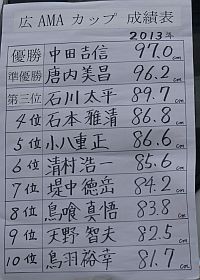 広AMAカップ 成績表
2013年
優勝 中田吉信 97.0cm
準優勝 唐内美昌 96.2cm
第三位 石川太平 89.7cm
4位 石本雅清 86.8cm
5位 小八重正 86.6cm
6位 清村浩一 85.6cm
7位 堤中徳岳 84.2cm
8位 鳥喰真悟 83.8cm
9位 天野智夫 82.5cm
10位 鳥羽裕幸 81.7cm